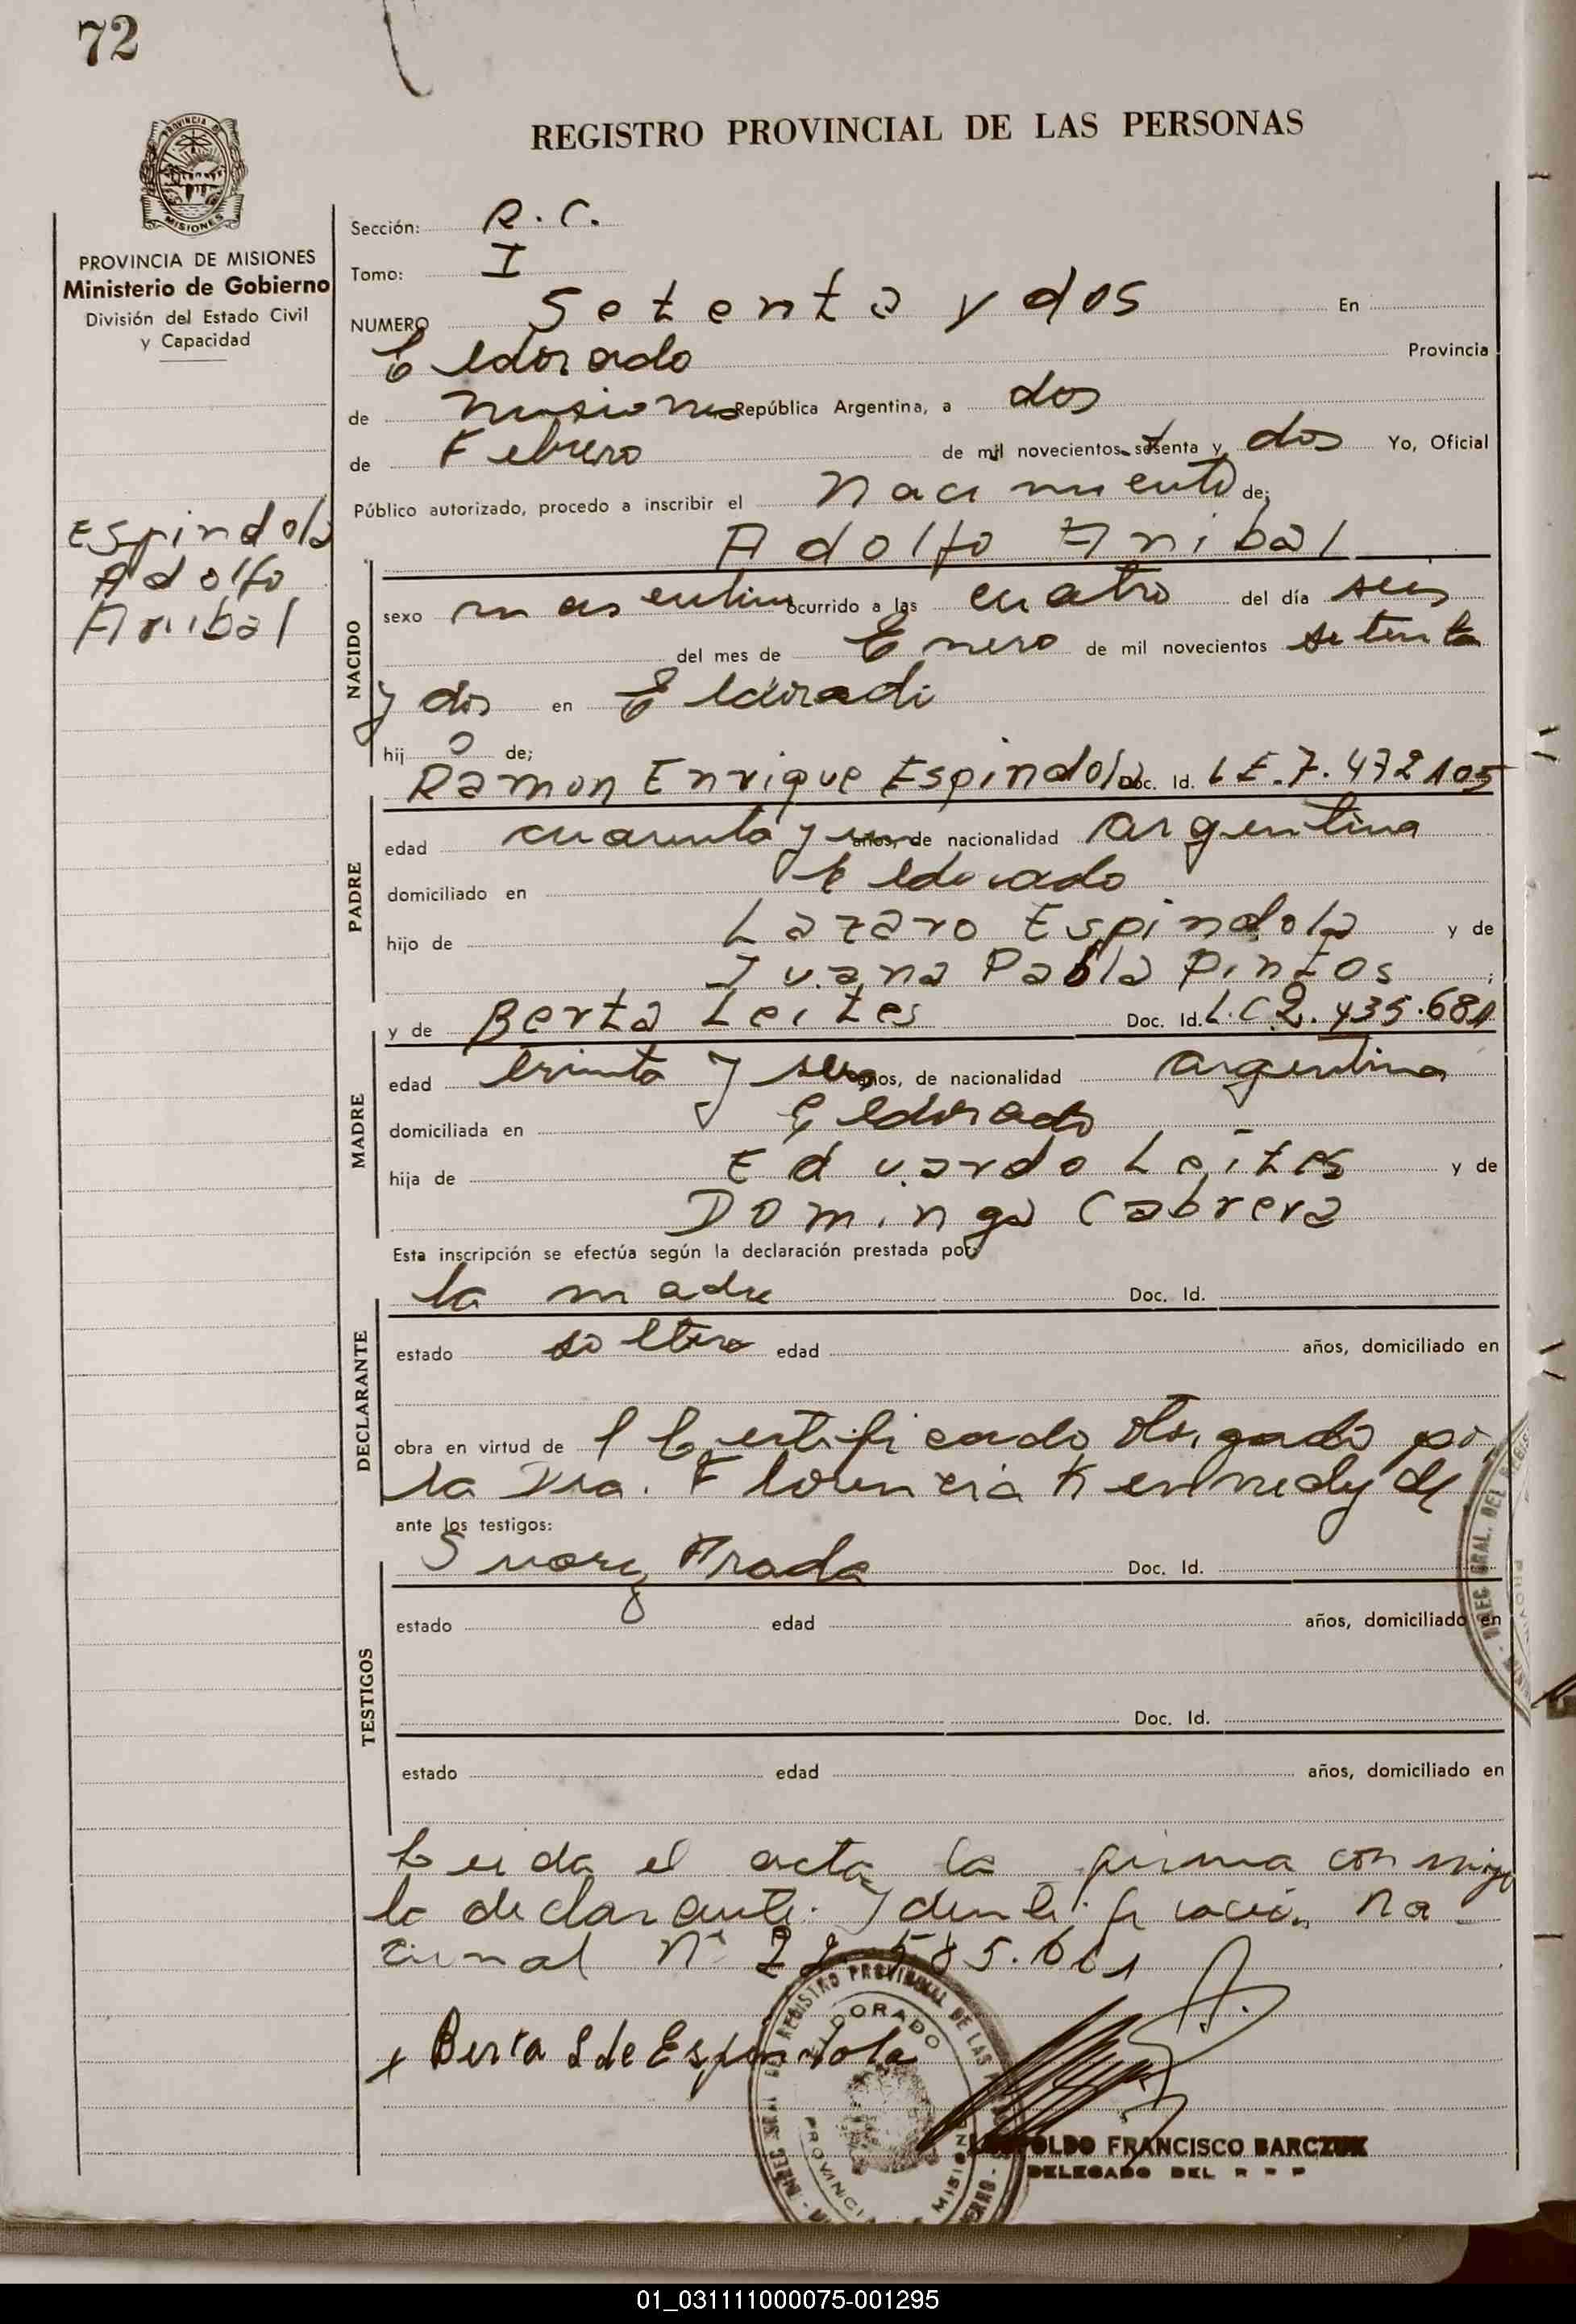 72
REGISTRO PROVINCIAL DE LAS PERSONAS
PROVINCIA DE
MISIONES
PROVINCIA DE MISIONES
Ministerio de Gobierno
División del Estado Civil
y Capacidad
Espindola
Adolfo
Anibal
Sección: R. C.
Tomo: I
NUMERO Setenta y dos En
Eldorado Provincia
de Misiones República Argentina, a dos
de Febrero de mil novecientos setenta y dos Yo, Oficial
Público autorizado, procedo a inscribir el Nacimiento de;
Adolfo Anibal
NACIDO
sexo masculino ocurrido a las cuatro del día seis
del mes de Enero de mil novecientos setenta
y dos en Eldorado
hij o de;
Ramon Enrique Espindola Doc. Id. LE. 7. 472 105
PADRE
edad cuarenta y un años, de nacionalidad argentina
domiciliado en Eldorado
hijo de Lazaro Espindola y de
Juana Pabla Pintos ;
y de Berta Leites Doc. Id. L.C 2. 435.681
MADRE
edad treinta y seis años, de nacionalidad argentina
domiciliada en Eldorado
hija de Eduardo Leites y de
Dominga Cabrera
Esta inscripción se efectúa según la declaración prestada por:
la madre Doc. Id.
DECLARANTE
estado soltera edad años, domiciliado en
obra en virtud de l Certificado otorgado por
la Dra. Florencia Kennedy de
ante los testigos:
Suarez Prada Doc. Id.
TESTIGOS
estado edad años, domiciliado en
Doc. Id.
estado edad años, domiciliado en
Leida el acta la firma conmigo
la declarante. Identificación Na
cional Nº 22.585.661
x Berta L de Espindola
REGISTRO PROVINCIAL DE LAS
ELDORADO
PROVINCIA MISIONES
LEOPOLDO FRANCISCO BARCZUK
DELEGADO DEL R P P
01_031111000075-001295